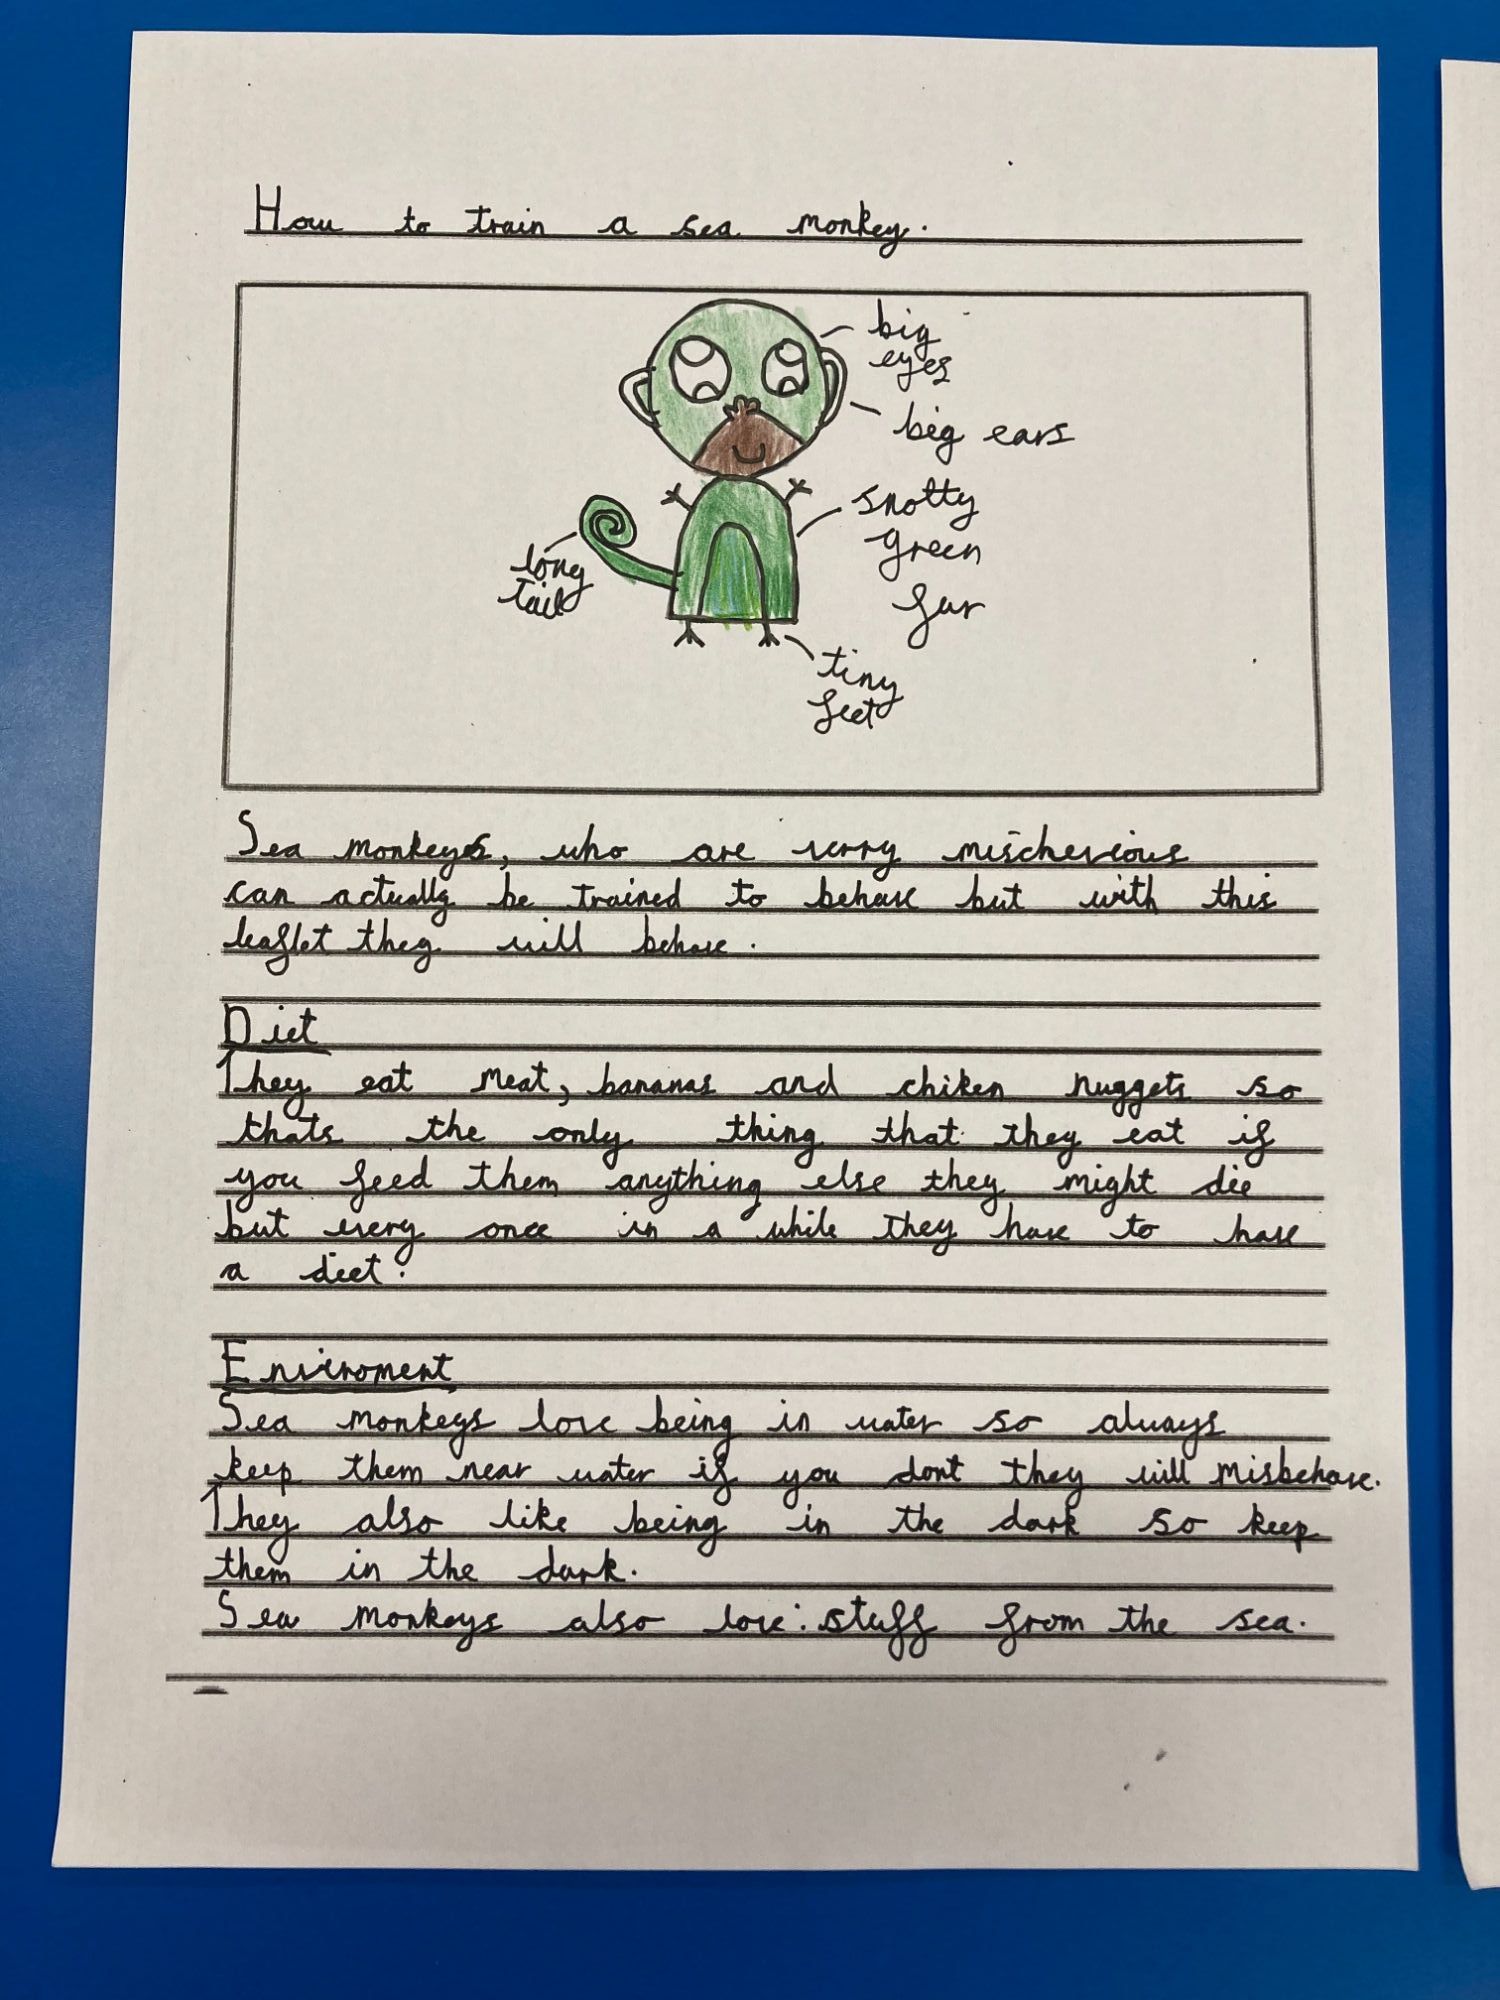 How to train a sea monkey.
big
eyes
big ears
snotty
green
fur
long
tail
tiny
feet
Sea monkeys, who are verry mischevious
can actually be trained to behave but with this
leaflet they will behave.
Diet
They eat meat, bananas and chiken nuggets so
thats the only thing that they eat if
you feed them anything else they might die
but every once in a while they have to have
a diet.
Enviroment
Sea monkeys love being in water so always
keep them near water if you dont they will misbehave.
They also like being in the dark so keep
them in the dark.
Sea monkeys also love: stuff from the sea.